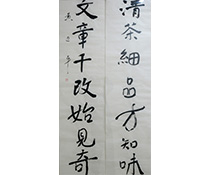 清茶細品方知味
文章千改始見奇